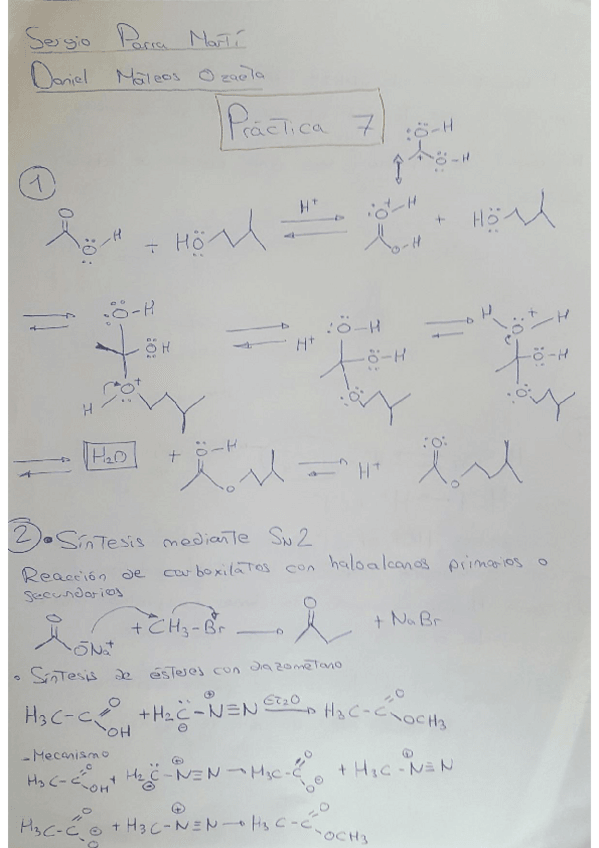 Sergio Parra Martí
Daniel Máteos
Práctica 7
:Ö-H
+ Ö-H
1
O
Ö-H
÷ HÖ
H⁺
:O⁺-H
O-H
+ HÖ
:Ö-H
ÖH
O⁺
H
H⁺
:Ö-H
Ö-H
:O
H O⁺ H
Ö-H
:O
H₂O + :O-H
O
H⁺
:O:
O
2 • Síntesis mediante SN2
Reacción de carboxilatos con haloalcanos primarios o
secundarios
O
ŌNa⁺ + CH₃-Br → O + NaBr
• Síntesis de ésteres con diazometano
H₃C-C O OH + H₂C̈-N≡N Et₂O → H₃C-C O OCH₃
⊖ ⊕
- Mecanismo
H₃C-C O OH + H₂C̈-N≡N → H₃C-C O O⊖ + H₃C-N≡N
⊖ ⊕ ⊕
H₃C-C O O⊖ + H₃C-N≡N → H₃C-C O OCH₃
⊕